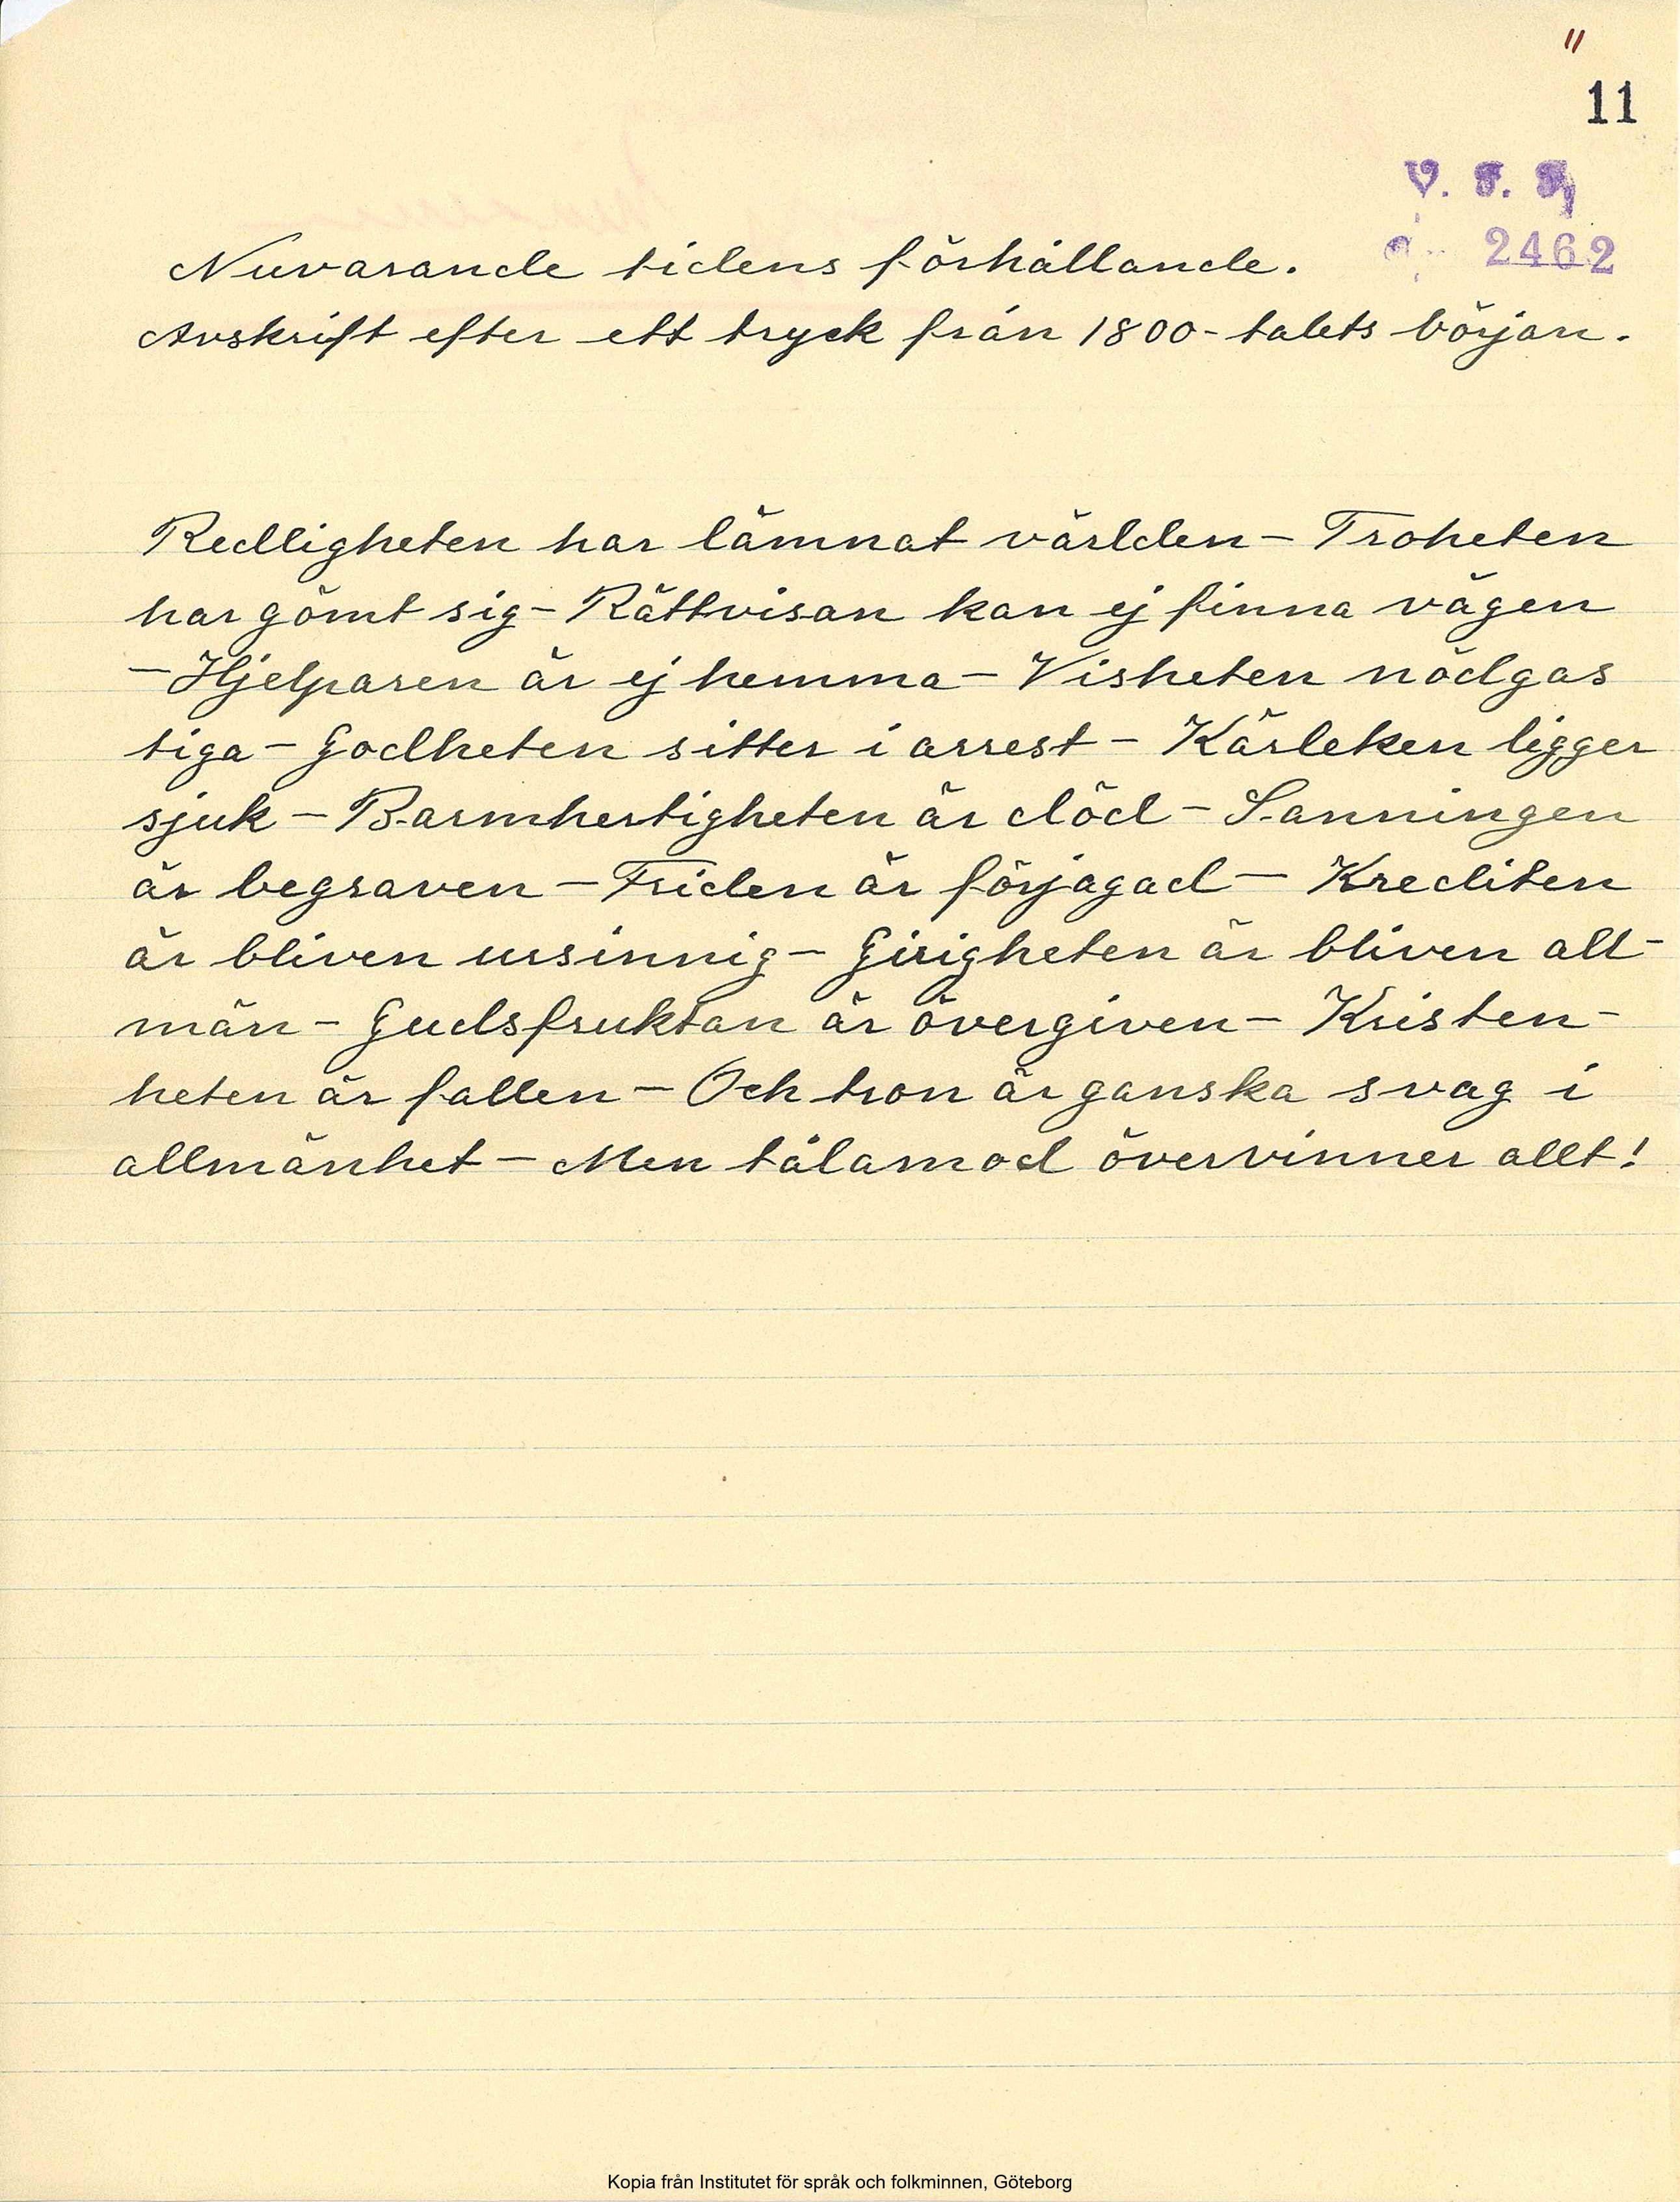 "
11
V. F. F.
2462
Nuvarande tidens förhållande.
Avskrift efter ett tryck från 1800-talets början.
Redligheten har lämnat världen – Troheten
har gömt sig – Rättvisan kan ej finna vägen
– Hjelparen är ej hemma – Visheten nödgas
tiga – Godheten sitter i arrest – Kärleken ligger
sjuk – Barmhertigheten är död – Sanningen
är begraven – Friden är förjagad – Krediten
är bliven ursinnig – Girigheten är bliven all-
män – Gudsfruktan är övergiven – Kristen-
heten är fallen – Och tron är ganska svag i
allmänhet – Men tålamod övervinner allt!
Kopia från Institutet för språk och folkminnen, Göteborg